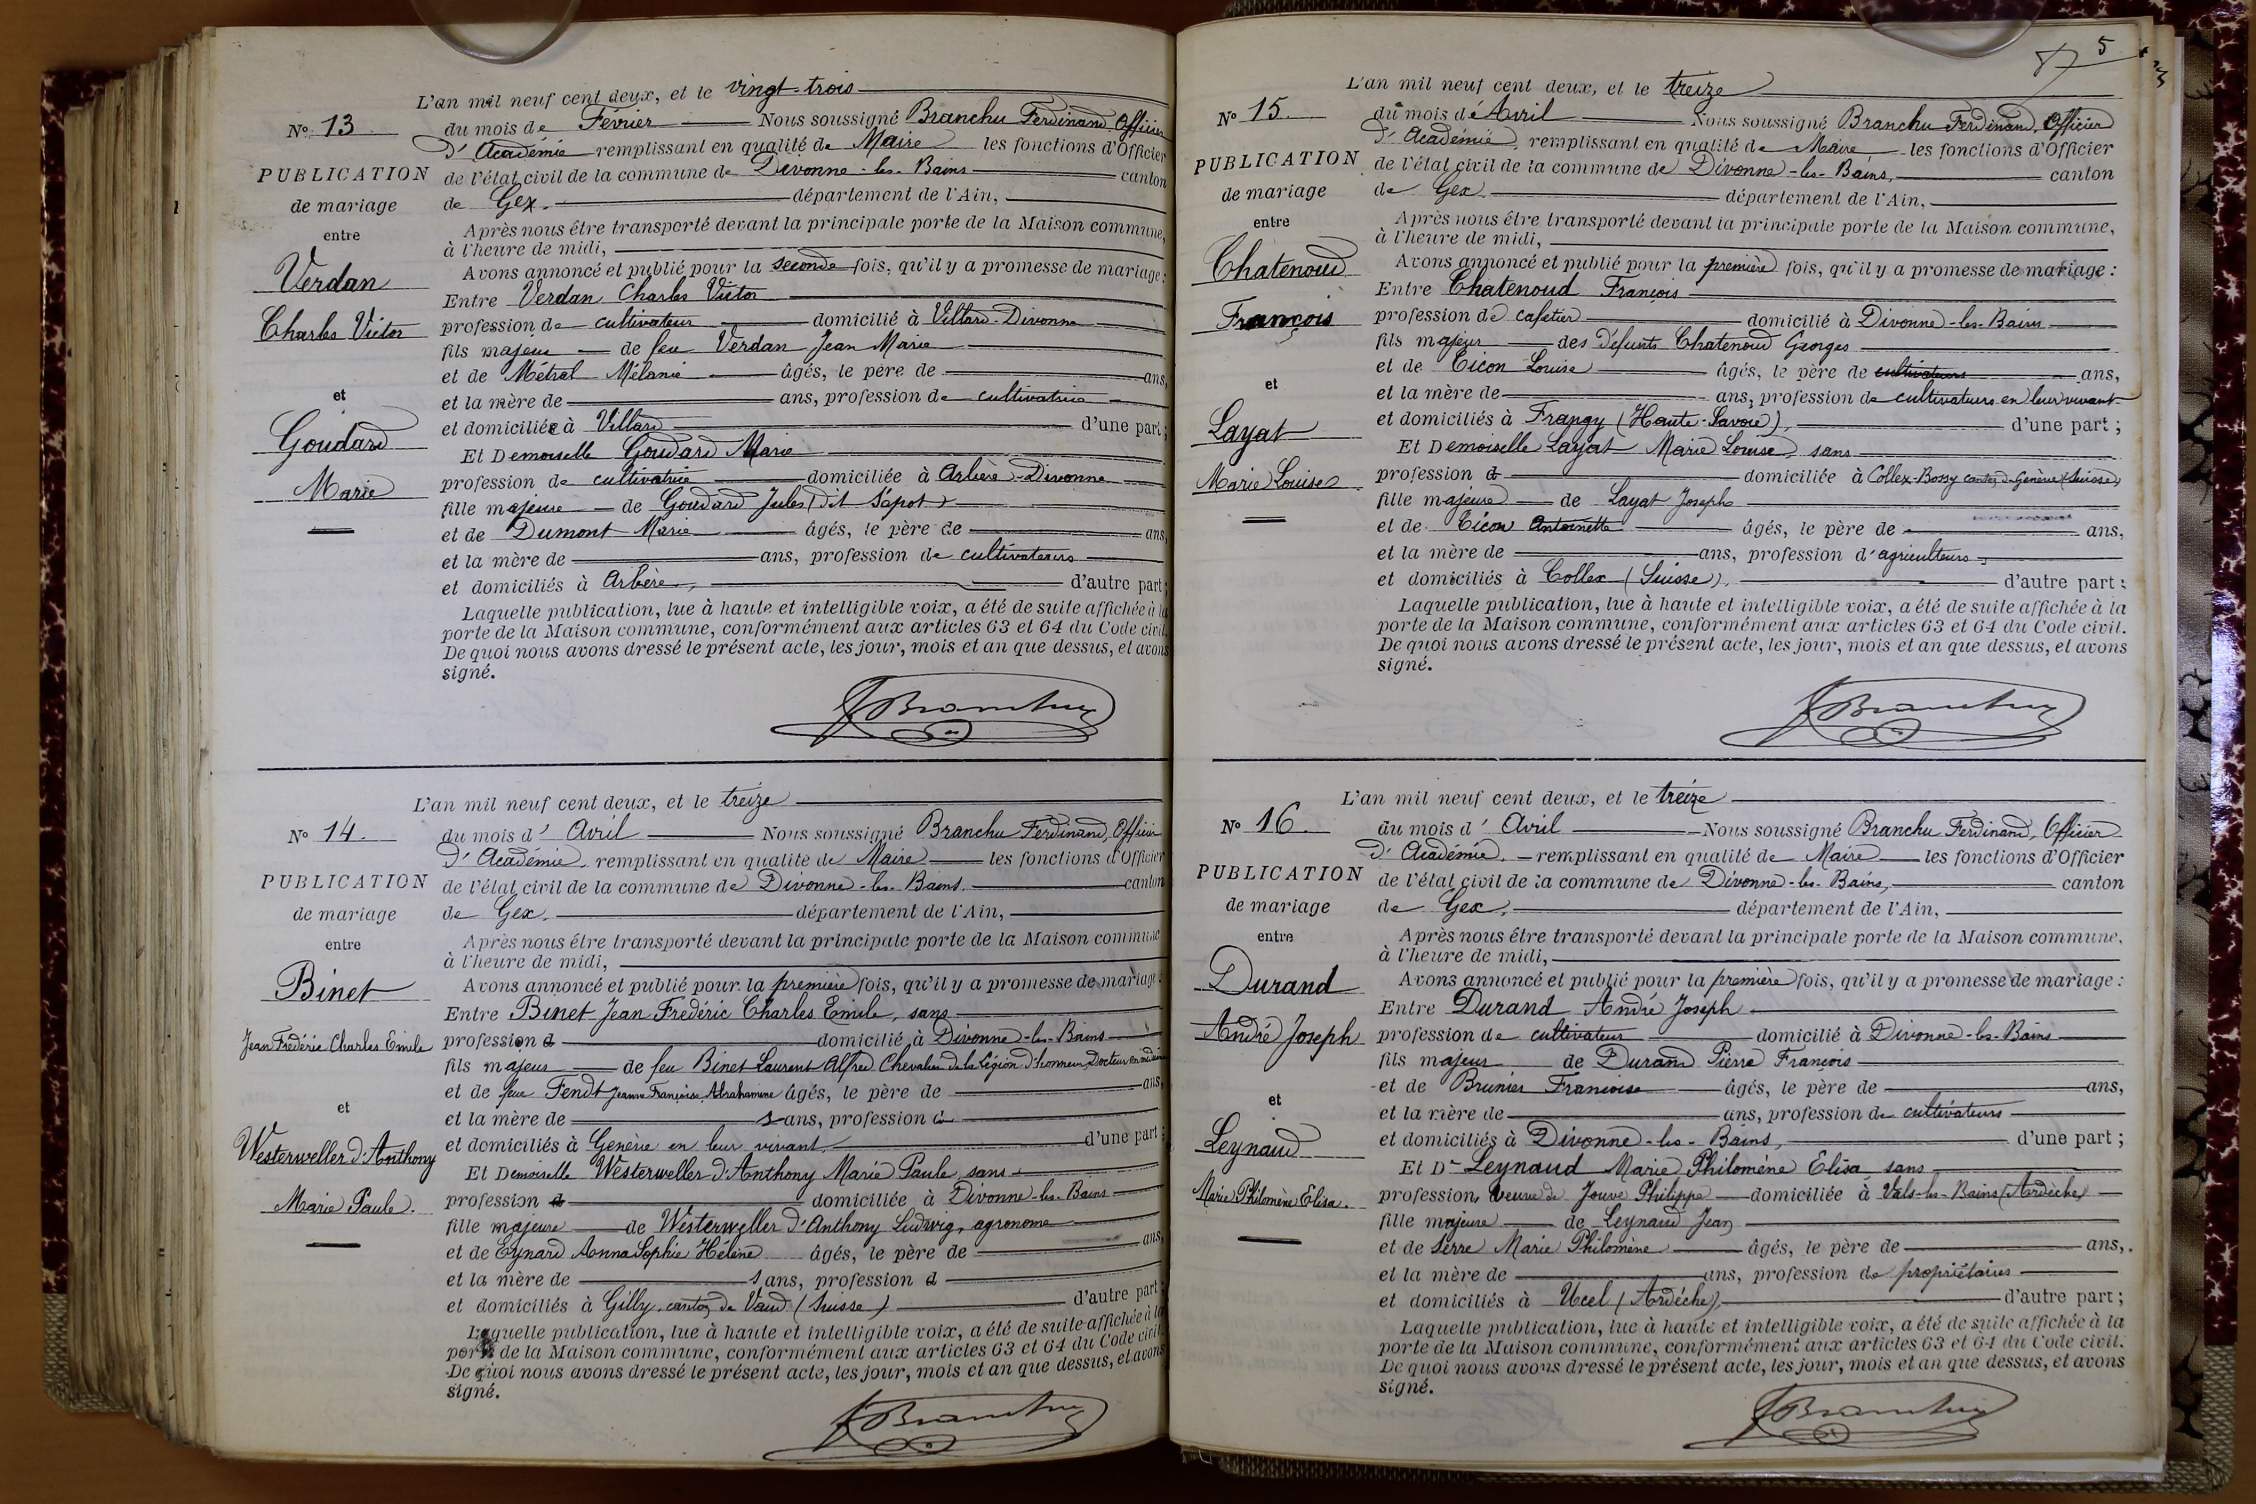 L'an mil neuf cent deux, et le vingt-trois
No 13
du mois de Février Nous soussigné Branchu Ferdinand, Officier
d'Académie remplissant en qualité de Maire les fonctions d'Officier
PUBLICATION
de l'état civil de la commune de Divonne-les-Bains canton
de mariage
de Gex. département de l'Ain,
entre
Après nous être transporté devant la principale porte de la Maison commune,
à l'heure de midi,
Verdan
Avons annoncé et publié pour la seconde fois, qu'il y a promesse de mariage:
Entre Verdan Charles Victor
Charles Victor
profession de cultivateur domicilié à Villard-Divonne
fils majeur de feu Verdan Jean Marie
et de Métral Mélanie âgés, le père de ans,
et
et la mère de ans, profession de cultivatrice
et domiciliée à Villard d'une part;
Goudard
Et Demoiselle Goudard Marie
Marie
profession de cultivatrice domiciliée à Arbère-Divonne
fille majeure de Goudard Jules (dit Sépot)
et de Dumont Marie âgés, le père de ans,
et la mère de ans, profession de cultivateurs
et domiciliés à Arbère, d'autre part;
Laquelle publication, lue à haute et intelligible voix, a été de suite affichée à la
porte de la Maison commune, conformément aux articles 63 et 64 du Code civil.
De quoi nous avons dressé le présent acte, les jour, mois et an que dessus, et avons
signé.
FBranchu
L'an mil neuf cent deux, et le treize
No 14.
du mois d'Avril Nous soussigné Branchu Ferdinand, Officier
d'Académie remplissant en qualité de Maire les fonctions d'Officier
PUBLICATION
de l'état civil de la commune de Divonne-les-Bains. canton
de mariage
de Gex, département de l'Ain,
entre
Après nous être transporté devant la principale porte de la Maison commune
à l'heure de midi,
Binet
Avons annoncé et publié pour la première fois, qu'il y a promesse de mariage:
Entre Binet Jean Frédéric Charles Emile, sans
Jean Frédéric Charles Emile
profession d domicilié à Divonne-les-Bains
fils majeur de feu Binet Laurent Alfred Chevalier de la Légion d'honneur, Docteur en médecine
et de feue Fendt Jeanne Françoise Abrahamine âgés, le père de ans,
et
et la mère de ans, profession d
et domiciliés à Genève en leur vivant, d'une part;
Westerweller d'Anthony
Et Demoiselle Westerweller d'Anthony Marie Paule sans
Marie Paule.
profession d domiciliée à Divonne-les-Bains
fille majeure de Westerweller d'Anthony Ludwig, agronome
et de Eynard Anna Sophie Hélène âgés, le père de ans,
et la mère de ans, profession d
et domiciliés à Gilly, canton de Vaud (Suisse) d'autre part;
Laquelle publication, lue à haute et intelligible voix, a été de suite affichée à la
porte de la Maison commune, conformément aux articles 63 et 64 du Code civil.
De quoi nous avons dressé le présent acte, les jour, mois et an que dessus, et avons
signé.
FBranchu
5
L'an mil neuf cent deux, et le treize
No 15.
du mois d'Avril Nous soussigné Branchu Ferdinand, Officier
d'Académie, remplissant en qualité de Maire les fonctions d'Officier
PUBLICATION
de l'état civil de la commune de Divonne-les-Bains, canton
de mariage
de Gex département de l'Ain,
entre
Après nous être transporté devant la principale porte de la Maison commune,
à l'heure de midi,
Chatenoud
Avons annoncé et publié pour la première fois, qu'il y a promesse de mariage:
Entre Chatenoud François
François
profession de cafetier domicilié à Divonne-les-Bains
fils majeur des défunts Chatenoud Georges
et de Ticon Louise âgés, le père de cultivateurs ans,
et
et la mère de ans, profession de cultivateurs en leur vivant
et domiciliés à Frangy (Haute-Savoie), d'une part;
Layat
Et Demoiselle Layat Marie Louise, sans
Marie Louise
profession d domiciliée à Collex-Bossy canton de Genève (Suisse)
fille majeure de Layat Joseph
et de Ticon Antoinette âgés, le père de ans,
et la mère de ans, profession d'agriculteurs
et domiciliés à Collex (Suisse), d'autre part;
Laquelle publication, lue à haute et intelligible voix, a été de suite affichée à la
porte de la Maison commune, conformément aux articles 63 et 64 du Code civil.
De quoi nous avons dressé le présent acte, les jour, mois et an que dessus, et avons
signé.
FBranchu
L'an mil neuf cent deux, et le treize
No 16.
du mois d'Avril Nous soussigné Branchu Ferdinand, Officier
d'Académie, remplissant en qualité de Maire les fonctions d'Officier
PUBLICATION
de l'état civil de la commune de Divonne-les-Bains, canton
de mariage
de Gex, département de l'Ain,
entre
Après nous être transporté devant la principale porte de la Maison commune,
à l'heure de midi,
Durand
Avons annoncé et publié pour la première fois, qu'il y a promesse de mariage:
Entre Durand André Joseph
André Joseph
profession de cultivateur domicilié à Divonne-les-Bains
fils majeur de Durand Pierre François
et de Brunier Françoise âgés, le père de ans,
et
et la mère de ans, profession de cultivateurs
et domiciliés à Divonne-les-Bains, d'une part;
Leynaud
Et De Leynaud Marie Philomène Elisa sans
Marie Philomène Elisa.
profession, veuve de Jouve Philippe domiciliée à Vals-les-Bains (Ardèche)
fille majeure de Leynaud Jean
et de Serre Marie Philomène âgés, le père de ans,
et la mère de ans, profession de propriétaires
et domiciliés à Ucel (Ardèche), d'autre part;
Laquelle publication, lue à haute et intelligible voix, a été de suite affichée à la
porte de la Maison commune, conformément aux articles 63 et 64 du Code civil.
De quoi nous avons dressé le présent acte, les jour, mois et an que dessus, et avons
signé.
FBranchu